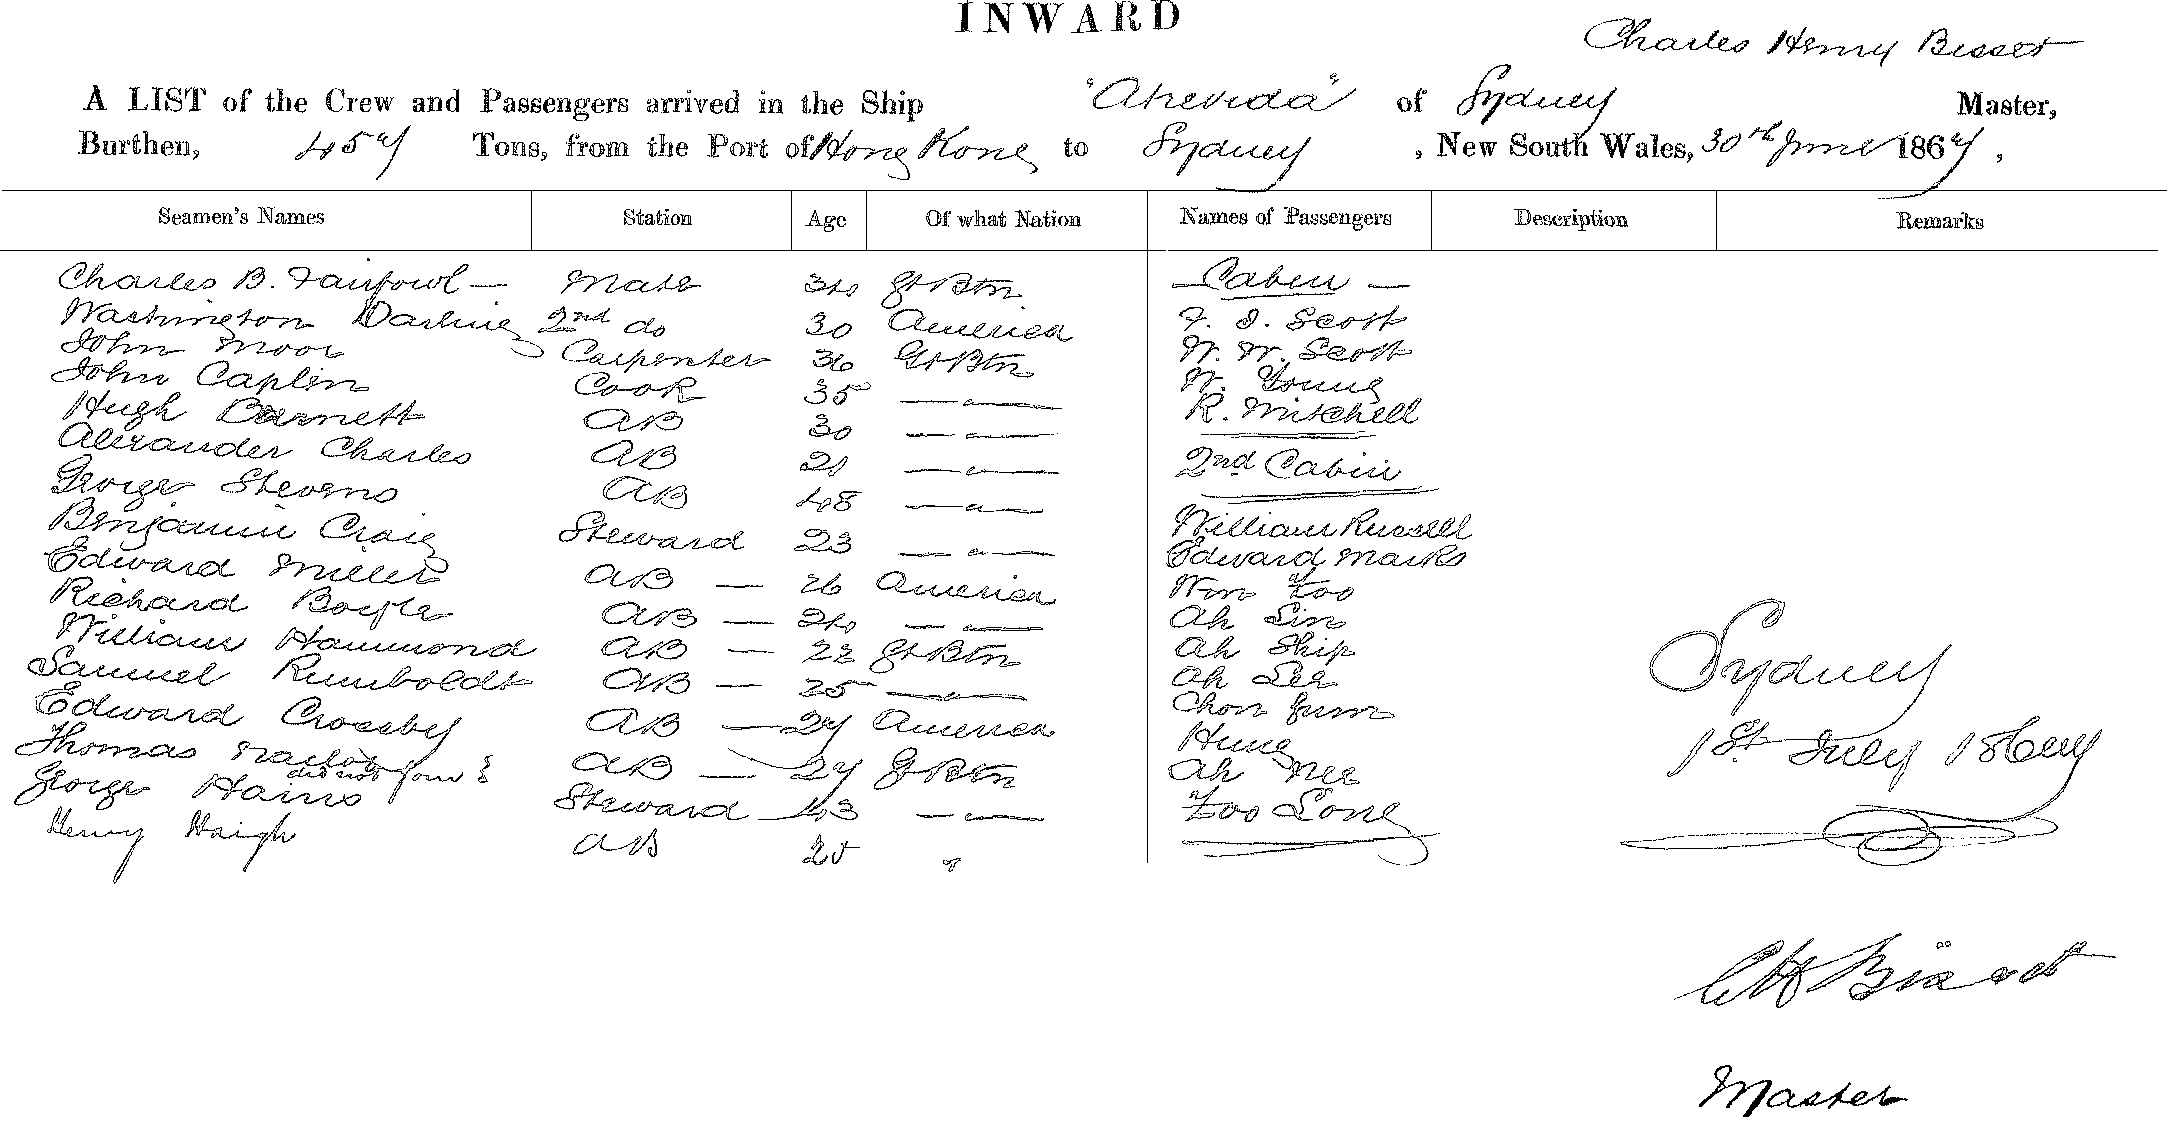 INWARD
Charles Henry Bisset
A LIST of the Crew and Passengers arrived in the Ship "Atrevida" of Sydney Master,
Burthen, 457 Tons, from the Port of Hong Kong to Sydney, New South Wales, 30th June 1867,
Seamen's Names Station Age Of what Nation Names of Passengers Description Remarks
Charles B. Fairfowl — Mate 34 Gt Btn
Washington Darling 2nd do 30 America
John Moor Carpenter 36 Gt Btn
John Caplin Cook 35 — " —
Hugh Barnett AB 30 — " —
Alexander Charles AB 21 — " —
George Stevens AB 48 — " —
Benjamin Craig Steward 23 — " —
Edward Miller AB — 26 America
Richard Boyle AB — 24 — " —
William Hammond AB — 22 Gt Btn
Samuel Rumboldt AB — 25 — " —
Edward Crosby AB — 27 America
Thomas AB — 27 Gt Btn
did not join
George Hains Steward 43 — " —
Henry Haigh AB 25 "
— Cabin —
F. I. Scott
W. W. Scott
W. Young
R. Mitchell
2nd Cabin
William Russell
Edward Marks
Wm Foo
Ah Lin
Ah Ship
Ah Lee
Chon
Hung
Ah Nee
Foo Long
Sydney
1st July 1867
CH Bisset
Master